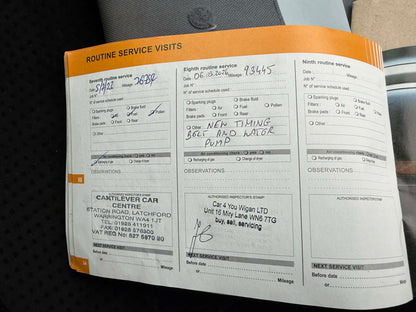 ROUTINE SERVICE VISITS
Seventh routine service
Date Mileage
Job N°
N° of service schedule used
Sparking plugs Brake fluid
Filters : Air Fuel Pollen
Brake pads : Front Rear
Other
Air conditioning check
Recharging of gas Change of dryer
OBSERVATIONS
AUTHORISED INSPECTOR'S STAMP
CANTILEVER CAR
CENTRE
STATION ROAD, LATCHFORD
WARRINGTON WA4 1JT
TEL: 01925 411911
FAX: 01925 575300
VAT REG No: 527 5970 90
NEXT SERVICE VISIT
Before date
or Mileage
Eighth routine service
Date 06.03.2026 Mileage 93445
Job N°
N° of service schedule used
Sparking plugs Brake fluid
Filters : Air Fuel Pollen
Brake pads : Front Rear
Other NEW TIMING
BELT AND WATER
PUMP
Air conditioning check
Recharging of gas Change of dryer
OBSERVATIONS
AUTHORISED INSPECTOR'S STAMP
Car 4 You Wigan LTD
Unit 16 Miry Lane WN6 7TG
buy, sell, servicing
NEXT SERVICE VISIT
Before date
or Mileage
Ninth routine service
Date
Job N°
N° of service schedule used
Sparking plugs
Filters : Air
Brake pads : Front
Other
Air conditioning
Recharging of gas
OBSERVATIONS
AUTHORISED INSPECTOR'S
NEXT SERVICE VISIT
Before date
or